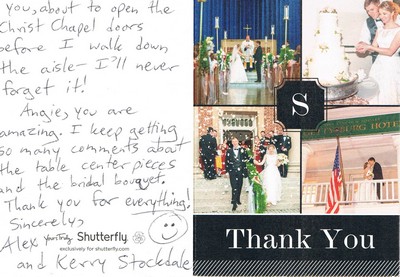 you, about to open the
Christ Chapel doors
before I walk down
the aisle- I'll never
forget it!
Angie, you are
amazing. I keep getting
so many comments about
the table center pieces
and the bridal bouquet.
Thank you for everything!
Sincerely,
Alex
Shutterfly
exclusively for shutterfly.com
and Kerry Stockdale
S
HOTEL
Thank You